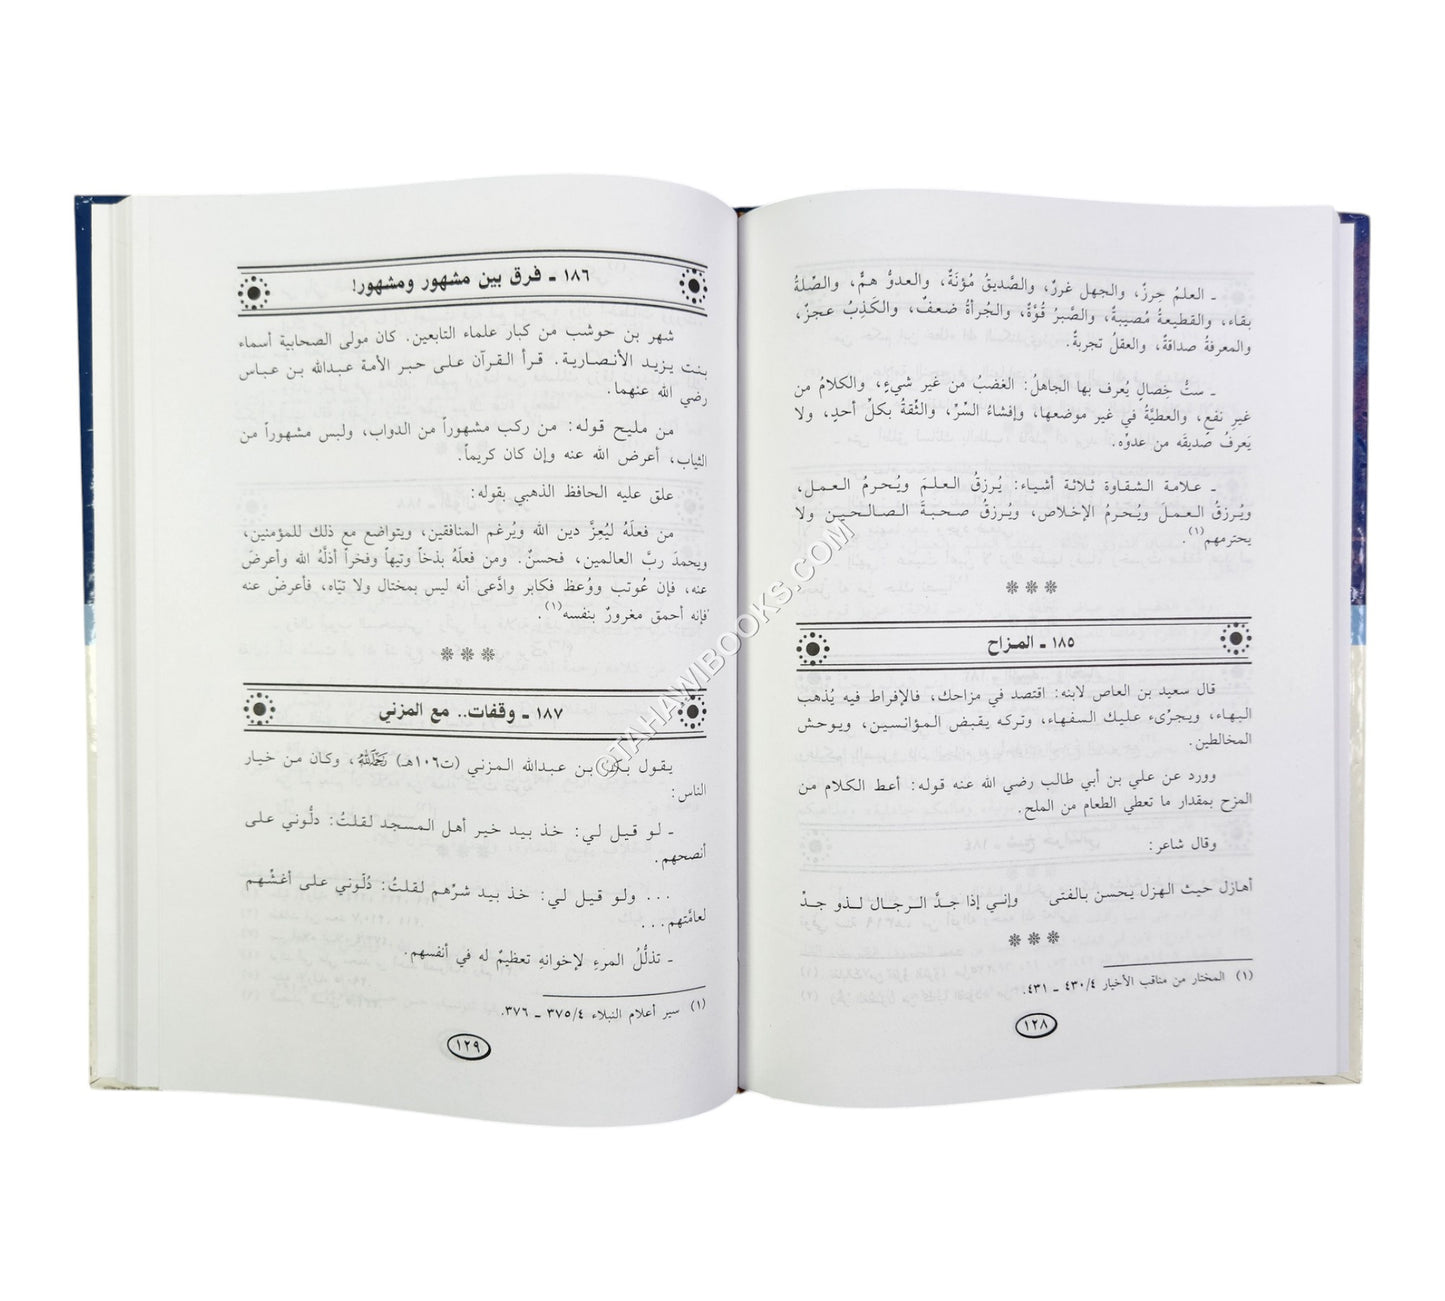 ـ العلمُ حِرزٌ، والجهل غررٌ، والصَّديقُ مُؤنَةٌ، والعدوُّ همٌّ، والصِّلةُ
بقاء، والقطيعةُ مُصيبةٌ، والصَّبرُ قُوَّةٌ، والجُرأةُ ضعفٌ، والكَذِبُ عجزٌ،
والمعرفةُ صداقةٌ، والعقلُ تجربةٌ.
ـ ستُّ خِصالٍ يُعرف بها الجاهلُ: الغضبُ من غير شيءٍ، والكلامُ من
غيرِ نفعٍ، والعطيَّةُ في غير موضعها، وإفشاءُ السِّرِّ، والثّقةُ بكلِّ أحدٍ، ولا
يَعرفُ صَديقَه من عدوِّه.
ـ علامة الشقاوة ثلاثة أشياء: يُرزقُ العلمَ ويُحرمُ العمل،
ويُرزقُ العملَ ويُحرمُ الإخلاص، ويُرزقُ صحبةَ الصالحين ولا
يحترمهم(١).
❊ ❊ ❊
١٨٥ ـ المزاح
قال سعيد بن العاص لابنه: اقتصد في مزاحك، فالإفراط فيه يُذهب
البهاء، ويجرّىء عليك السفهاء، وتركه يقبض المؤانسين، ويوحش
المخالطين.
وورد عن علي بن أبي طالب رضي الله عنه قوله: أعط الكلام من
المزح بمقدار ما تعطي الطعام من الملح.
وقال شاعر:
أهازل حيث الهزل يحسن بالفتى وإني إذا جدَّ الرجال لذو جدْ
❊ ❊ ❊
(١) المختار من مناقب الأخيار ٤/٤٣٠ ـ ٤٣١.
١٢٨
١٨٦ ـ فرق بين مشهور ومشهور!
شهر بن حوشب من كبار علماء التابعين. كان مولى الصحابية أسماء
بنت يزيد الأنصارية. قرأ القرآن على حبر الأمة عبدالله بن عباس
رضي الله عنهما.
من مليح قوله: من ركب مشهوراً من الدواب، ولبس مشهوراً من
الثياب، أعرض الله عنه وإن كان كريماً.
علق عليه الحافظ الذهبي بقوله:
من فعلَهُ ليُعِزَّ دين الله ويُرغم المنافقين، ويتواضع مع ذلك للمؤمنين،
ويحمدَ ربَّ العالمين، فحسنٌ. ومن فعلَهُ بذخاً وتيهاً وفخراً أذلَّهُ الله وأعرضَ
عنه، فإن عُوتب ووُعظ فكابر وادَّعى أنه ليس بمختال ولا تيّاه، فأعرضْ عنه
فإنه أحمق مغرورٌ بنفسه(١).
❊ ❊ ❊
١٨٧ ـ وقفات.. مع المزني
يقول بكر بن عبدالله المزني (ت١٠٦هـ) رَحِمَهُ اللَّهُ، وكان من خيار
الناس:
ـ لو قيل لي: خذ بيد خير أهل المسجد لقلتُ: دلُّوني على
أنصحهم.
... ولو قيل لي: خذ بيد شرِّهم لقلتُ: دُلّوني على أغشِّهم
لعامَّتهم...
ـ تذلُّلُ المرءِ لإخوانهِ تعظيمٌ له في أنفسهم.
(١) سير أعلام النبلاء ٤/٣٧٥ ـ ٣٧٦.
١٢٩
©TAHAWIBOOKS.COM